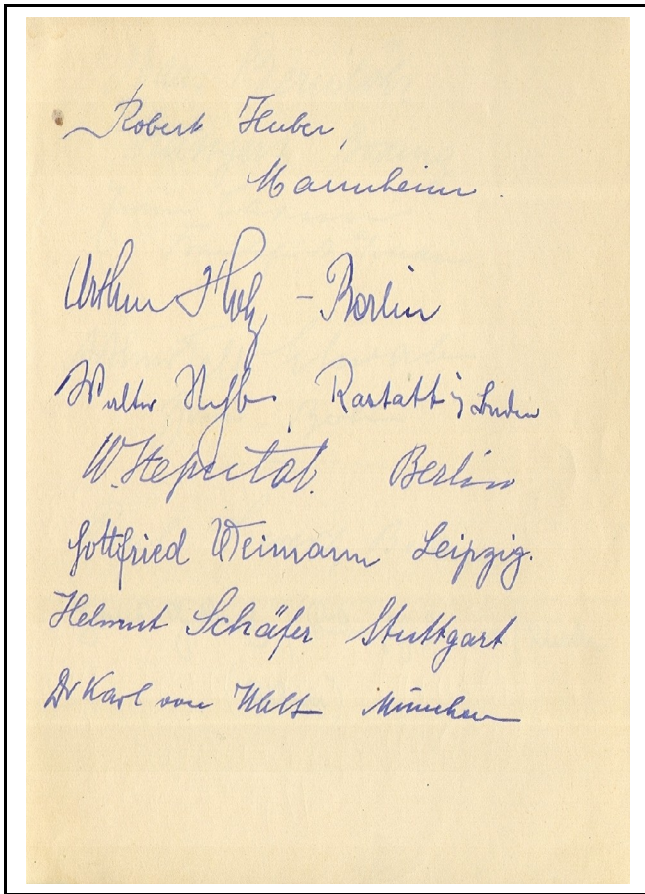 Robert Huber,
Mannheim.
Arthur Holz - Berlin
Walter Rastatt i/Baden
Berlin
Gottfried Weimann Leipzig.
Helmut Schäfer Stuttgart
Dr Karl von Halt München